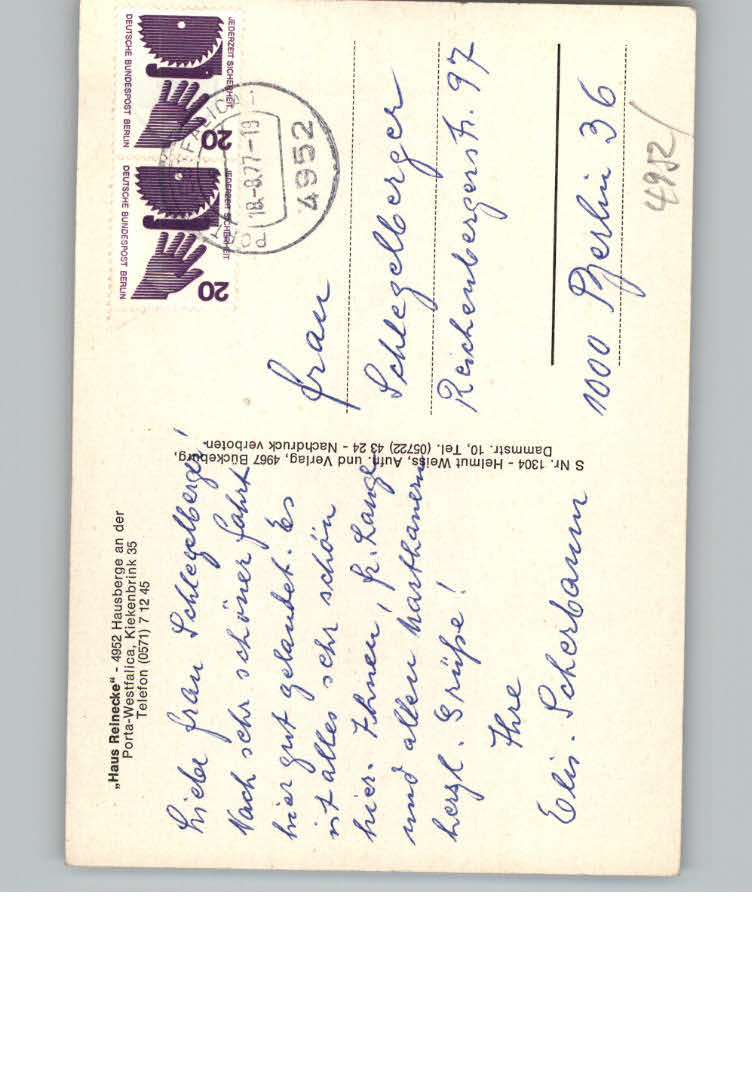 „Haus Reinecke“ - 4952 Hausberge an der
Porta-Westfalica, Kiekenbrink 35
Telefon (0571) 7 12 45
Liebe Frau Schlegelberger!
Nach sehr schöner Fahrt
hier gut gelandet. Es
ist alles sehr schön
hier. Ihnen, Fr. Lange
und allen Marthanern
herzl. Grüße!
Ihre
Elis. Scherbaum
S Nr. 1304 - Helmut Weiss, Aufn. und Verlag, 4967 Bückeburg,
Dammstr. 10, Tel. (05722) 43 24 - Nachdruck verboten
JEDERZEIT SICHERHEIT
20
DEUTSCHE BUNDESPOST BERLIN
JEDERZEIT SICHERHEIT
20
DEUTSCHE BUNDESPOST BERLIN
18.-8.77-18
4952
Frau
Schlegelberger
Reichenbergerstr. 97
1000 Berlin 36
4952